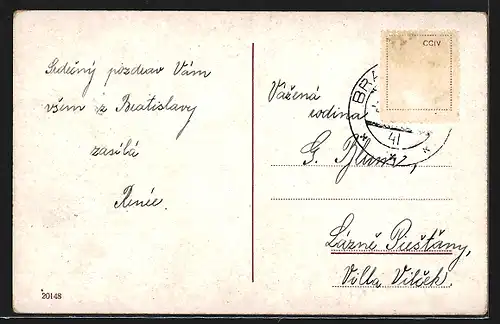 Srdečný pozdrav Vám
všem z Bratislavy
zasílá
Renée.
CCIV
BRA
41
Vážená
rodina
G. Blum,
Lázně Piešťany,
Villa Vlček.
20148